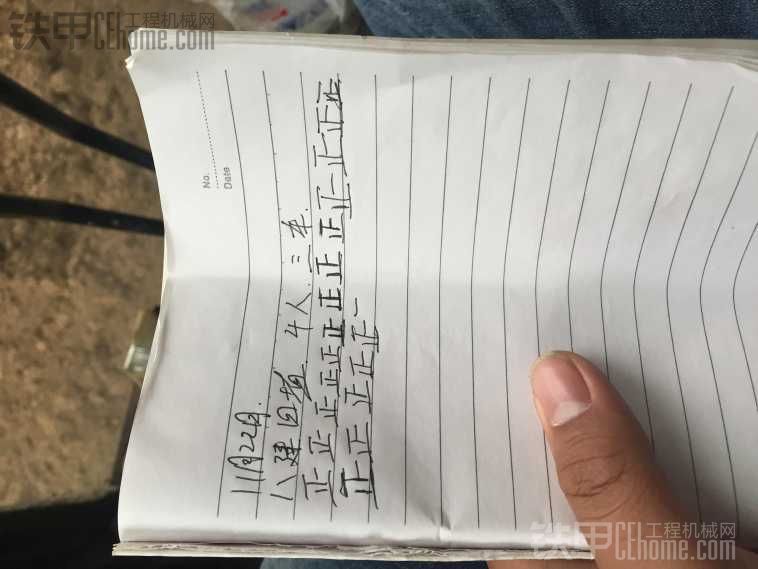 铁甲 工程机械网
CEhome.com
No.
Date
11月22日.
八建回填 4人.三车.
正正正正正正正正正正一正正正
正正正正正一
铁甲 工程机械网
CEhome.com